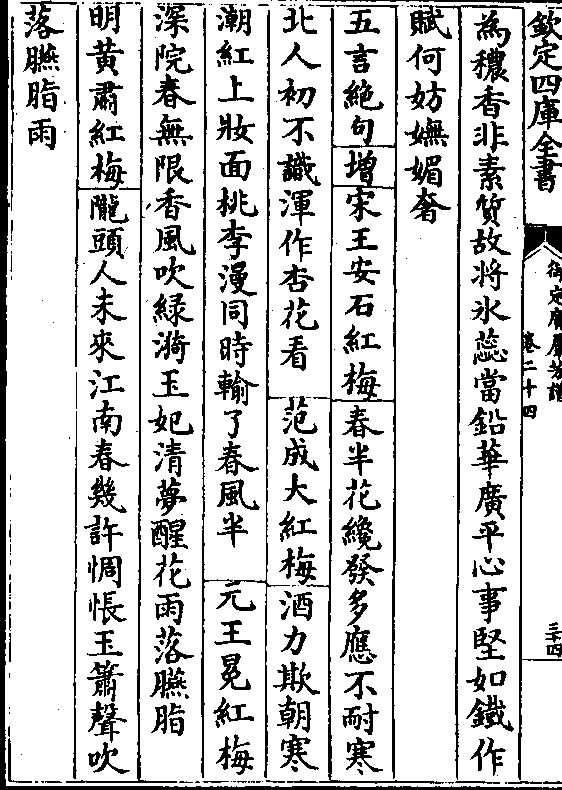 欽定四庫全書
御定廣羣芳譜
卷二十四
三十四
為穠香非素質故將氷蕊當鉛華廣平心事堅如鐵作
賦何妨嫵媚奢
五言絶句增宋王安石紅梅春半花纔發多應不耐寒
北人初不識渾作杏花看 范成大紅梅酒力欺朝寒
潮紅上妝面桃李漫同時輸了春風半 元王冕紅梅
深院春無限香風吹綠漪玉妃清夢醒花雨落臙脂
明黄肅紅梅隴頭人未來江南春幾許惆悵玉簫聲吹
落臙脂雨